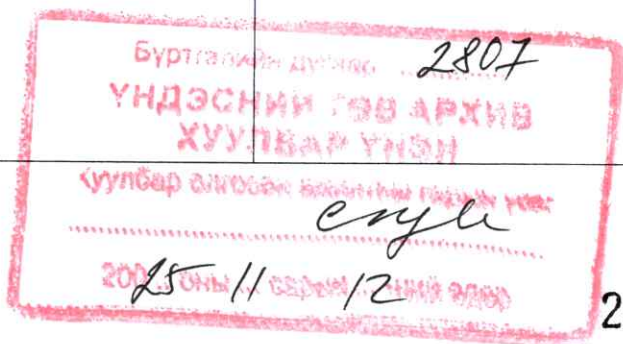 Бүртгэлийн дугаар 2807
ҮНДЭСНИЙ ТӨВ АРХИВ
ХУУЛБАР ҮНЭН
Хуулбар олгосон
200 25 оны 11 сарын 12 ний өдөр
2